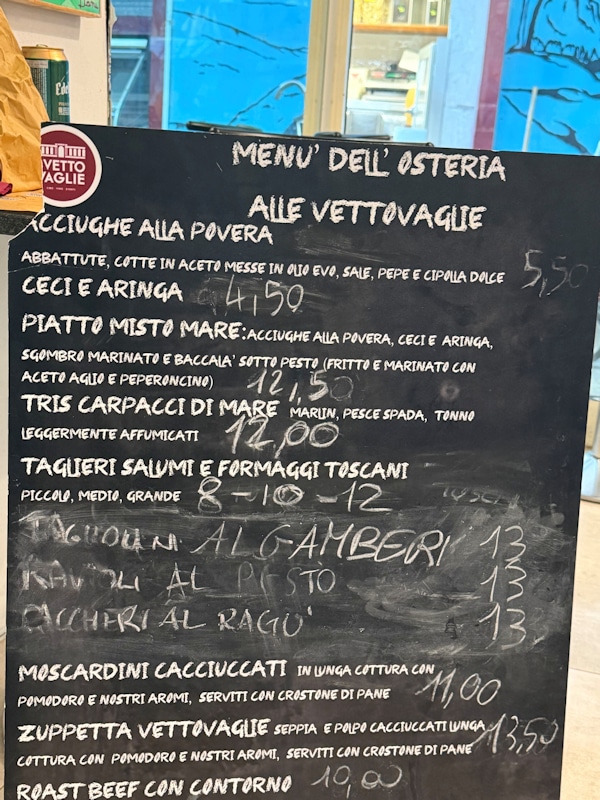 VETTO
VAGLIE
MENU' DELL' OSTERIA
ALLE VETTOVAGLIE
ACCIUGHE ALLA POVERA
ABBATTUTE, COTTE IN ACETO MESSE IN OLIO EVO, SALE, PEPE E CIPOLLA DOLCE 5,50
CECI E ARINGA 4,50
PIATTO MISTO MARE: ACCIUGHE ALLA POVERA, CECI E ARINGA,
SGOMBRO MARINATO E BACCALA' SOTTO PESTO (FRITTO E MARINATO CON
ACETO AGLIO E PEPERONCINO) 12,50
TRIS CARPACCI DI MARE MARLIN, PESCE SPADA, TONNO
LEGGERMENTE AFFUMICATI 12,00
TAGLIERI SALUMI E FORMAGGI TOSCANI
PICCOLO, MEDIO, GRANDE 8-10-12
TAGLIOLINI AI GAMBERI 13
RAVIOLI AL PESTO 13
PACCHERI AL RAGU' 13
MOSCARDINI CACCIUCCATI IN LUNGA COTTURA CON
POMODORO E NOSTRI AROMI, SERVITI CON CROSTONE DI PANE 11,00
ZUPPETTA VETTOVAGLIE SEPPIA E POLPO CACCIUCCATI LUNGA
COTTURA CON POMODORO E NOSTRI AROMI, SERVITI CON CROSTONE DI PANE 13,50
ROAST BEEF CON CONTORNO 10,00